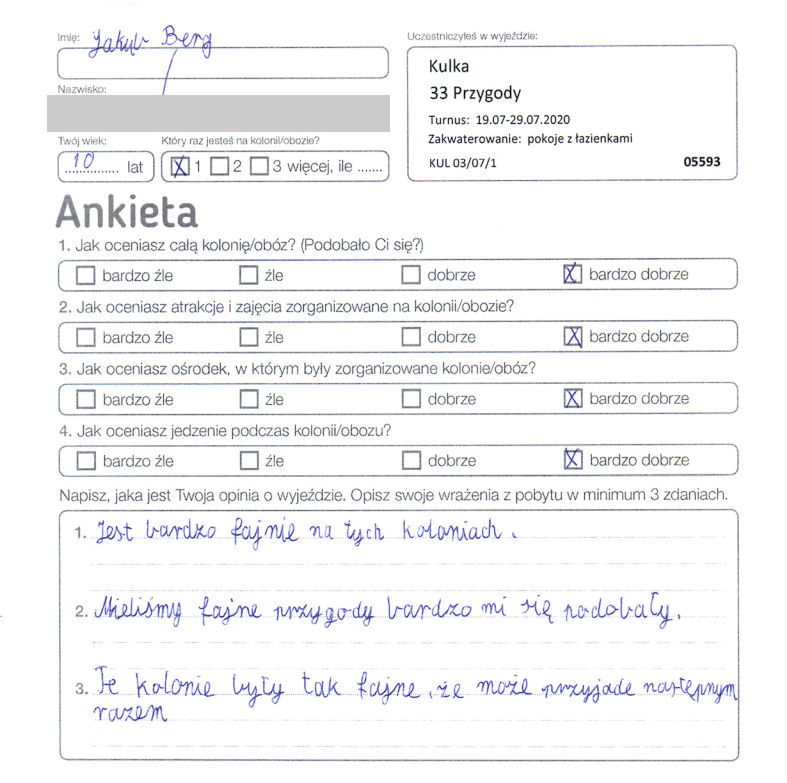 Imię: Jakub Berg
Uczestniczyłeś w wyjeździe:
Kulka
33 Przygody
Turnus: 19.07-29.07.2020
Zakwaterowanie: pokoje z łazienkami
KUL 03/07/1 05593
Nazwisko:
Twój wiek: Który raz jesteś na kolonii/obozie?
10 lat X 1 2 3 więcej, ile .......
Ankieta
1. Jak oceniasz całą kolonię/obóz? (Podobało Ci się?)
bardzo źle źle dobrze X bardzo dobrze
2. Jak oceniasz atrakcje i zajęcia zorganizowane na kolonii/obozie?
bardzo źle źle dobrze X bardzo dobrze
3. Jak oceniasz ośrodek, w którym były zorganizowane kolonie/obóz?
bardzo źle źle dobrze X bardzo dobrze
4. Jak oceniasz jedzenie podczas kolonii/obozu?
bardzo źle źle dobrze X bardzo dobrze
Napisz, jaka jest Twoja opinia o wyjeździe. Opisz swoje wrażenia z pobytu w minimum 3 zdaniach.
1. Jest bardzo fajnie na tych koloniach.
2. Mieliśmy fajne przygody bardzo mi się podobały.
3. Te kolonie były tak fajne, że może przyjade następnym
razem